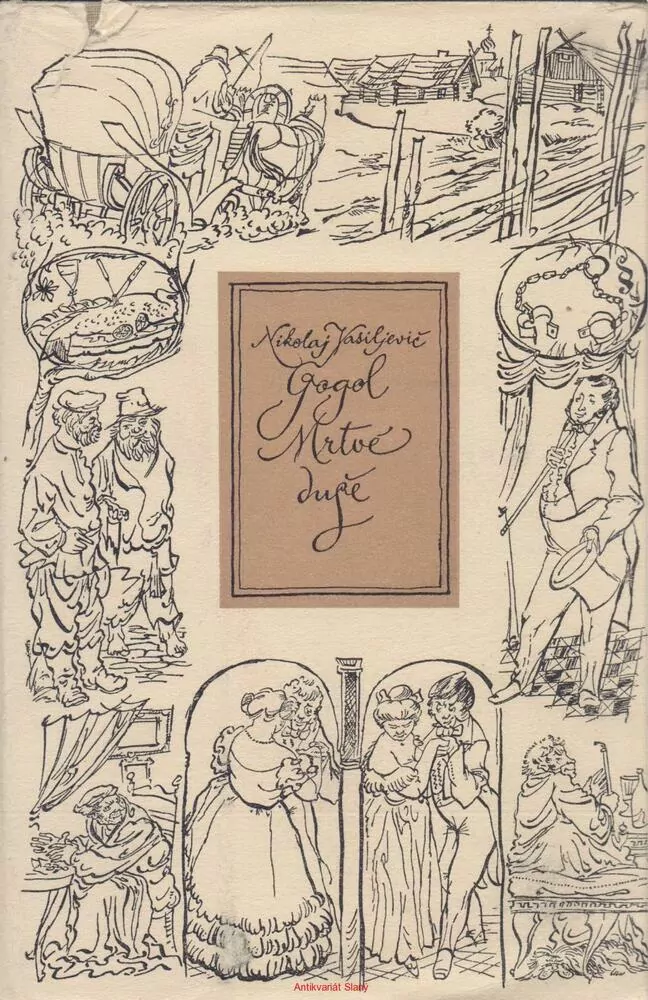 Nikolaj Vasiljevič
Gogol
Mrtvé
duše
Antikvariát Slaný